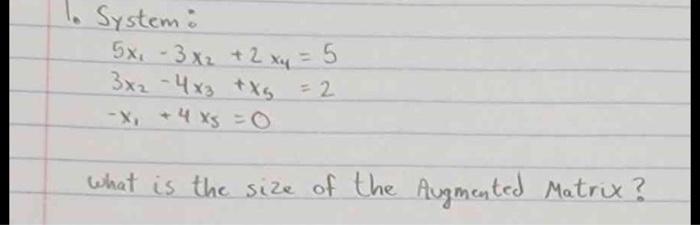 1. System:
5x₁ - 3x₂ + 2x₄ = 5
3x₂ - 4x₃ + x₅ = 2
-x₁ + 4x₅ = 0
what is the size of the Augmented Matrix?